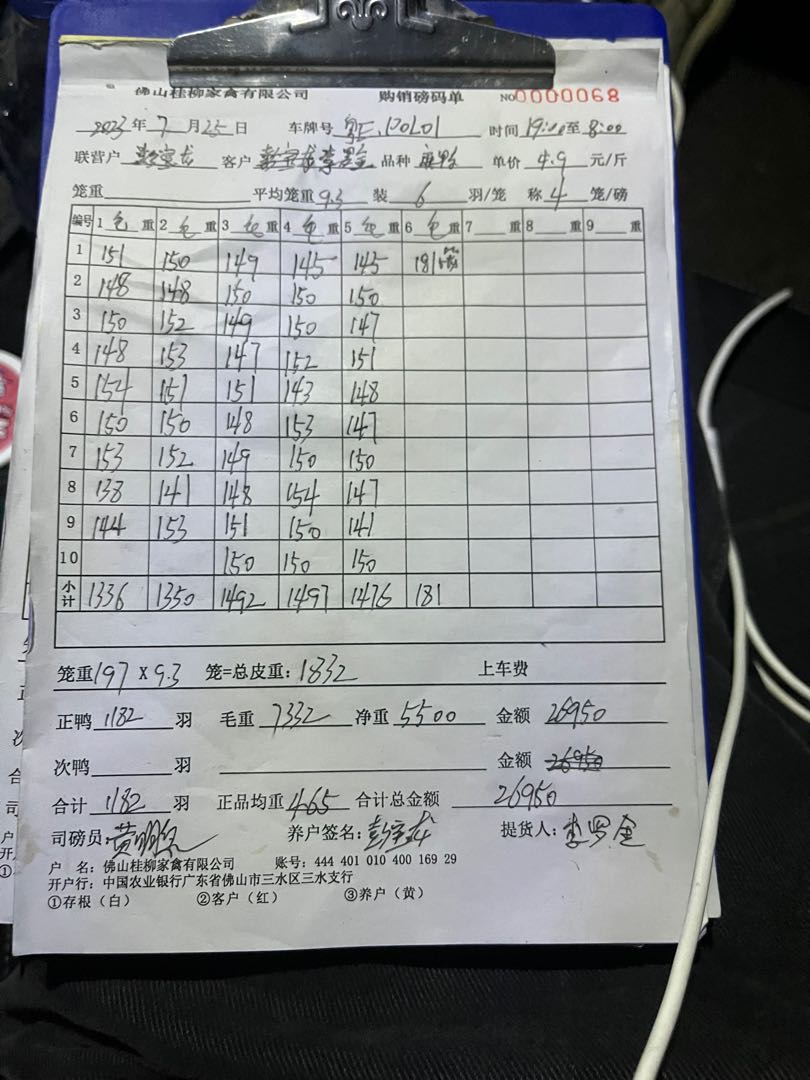 佛山桂柳家禽有限公司 购销磅码单 NO0000068
2023年7月25日 车牌号 时间19:00至8:00
联营户 客户 品种 麻鸭 单价 4.9 元/斤
笼重 平均笼重9.3 装 6 羽/笼 称 4 笼/磅
编号 1 毛 重 2 毛 重 3 毛 重 4 毛 重 5 毛 重 6 毛 重 7 重 8 重 9 重
1 151 150 149 145 145 181
2 148 148 150 150 150
3 150 152 149 150 147
4 148 153 147 152 151
5 154 151 151 143 148
6 150 150 148 153 147
7 153 152 149 150 150
8 138 141 148 154 147
9 144 153 151 150 141
10 150 150 150
小计 1336 1350 1492 1497 1476 181
笼重197 X 9.3 笼=总皮重：1832 上车费
正鸭 1182 羽 毛重 7332 净重 5500 金额 26950
次鸭 羽 金额 26950
合计 1182 羽 正品均重 4.65 合计总金额 26950
司磅员 养户签名： 提货人：李罗金
户 名：佛山桂柳家禽有限公司 账号：444 401 010 400 169 29
开户行：中国农业银行广东省佛山市三水区三水支行
①存根（白） ②客户（红） ③养户（黄）